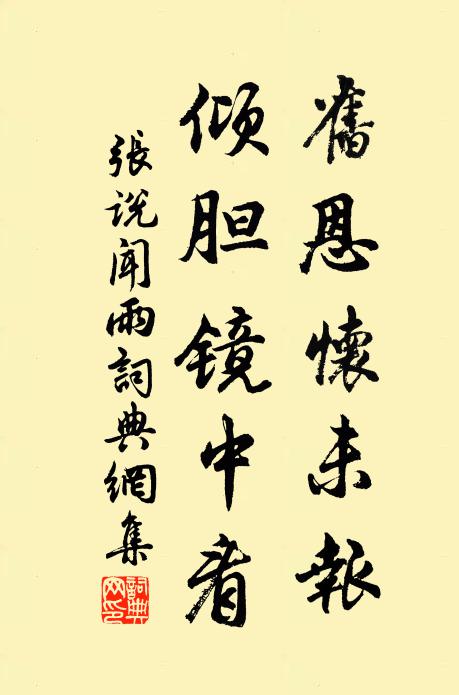 舊恩懷未報
倾胆镜中看
張说闻雨詞典網集
詞典網印